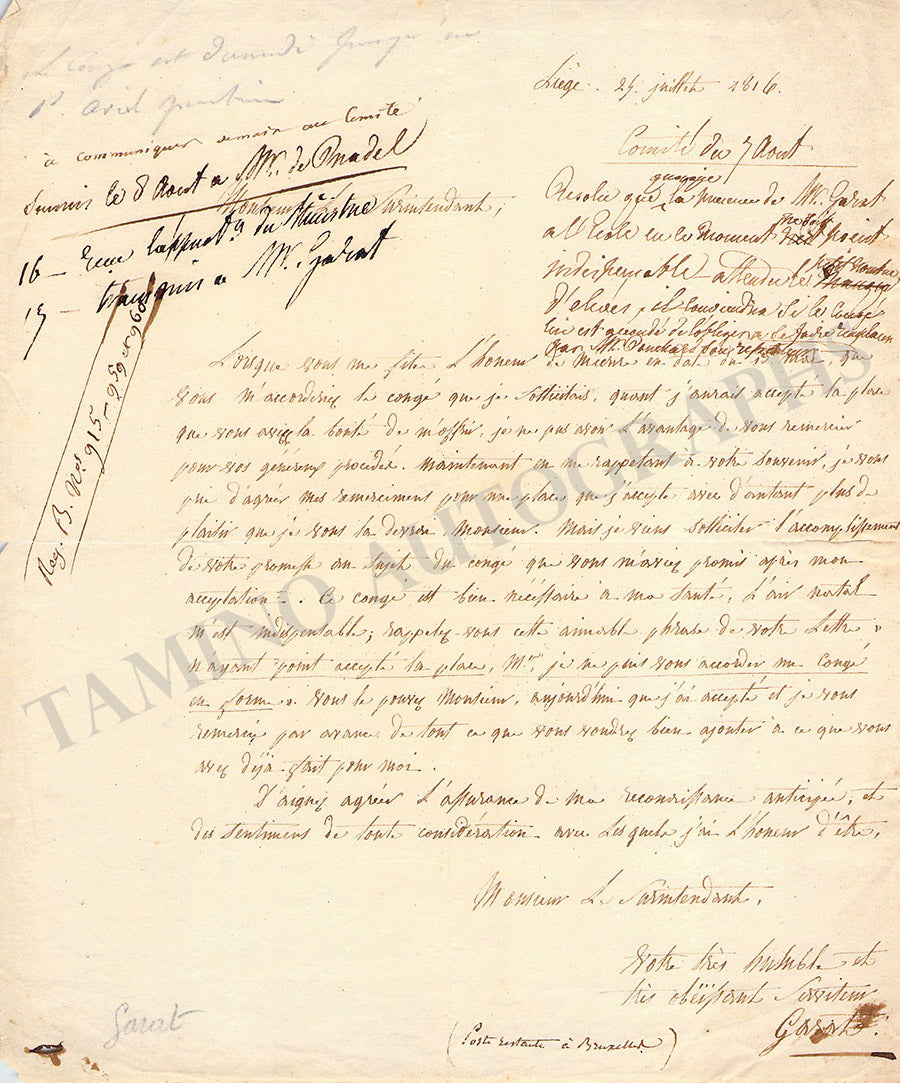 Le Congé est demandé jusqu'au
1er avril prochain
à communiquer demain au Comité
Soumis le 8 Aout a Mr. de Pradel
16 — Reçu l'approbon du Ministre
17 — transmis a Mr. Garat
Reg. B. Nos 915 - 959 et 960
Liége. 25 juillet 1816.
Comité du 7 Aout
quoique
Resolu que la presence de Mr. Garat
a l'Ecole en ce moment ne soit point
indispensable attendu le petit nombre
d'eleves, il conviendra si le Congé
lui est accordé de l'obliger a se faire remplacer
par Mr. Ponchard son repetiteur
Monsieur Le Surintendant,
Lorsque vous me fites L'honeur de m'ecrire en date du 15 mai que
vous m'accorderiez le congé que je sollicitais, quant j'aurais accepté la place
que vous aviez la bonté de m'offrir, je ne pus avoir l'avantage de vous remercier
pour vos généreux procédés. Maintenant en me rappelant à votre souvenir, je vous
prie d'agréer mes remerciment pour une place que j'accepte avec d'autant plus de
plaisir que je vous la devrai Monsieur. Mais je viens solliciter l'accomplissement
de votre promesse au sujet du congé que vous m'aviez promis après mon
acceptation. Ce congé est bien nécéssaire à ma santé, L'air natal
m'est indispensable; rappelez-vous cette aimable phrase de votre Lettre »
n'ayant point accepté la place, Mr, je ne puis vous accorder un Congé
en forme ». Vous le pouvez Monsieur, aujourd'hui que j'ai accepté et je vous
remercie par avance de tout ce que vous voudrez bien ajouter à ce que vous
avez déjà fait pour moi.
D'aignez agréer L'assurance de ma reconaissance anticipée, et
des sentiments de toute considération avec Lesquels j'ai L'honeur d'être,
Monsieur Le Surintendant,
votre très humble et
très obéissant Serviteur
Garat
(Poste restante à Bruxelles.)
Garat
TAMINO AUTOGRAPHS